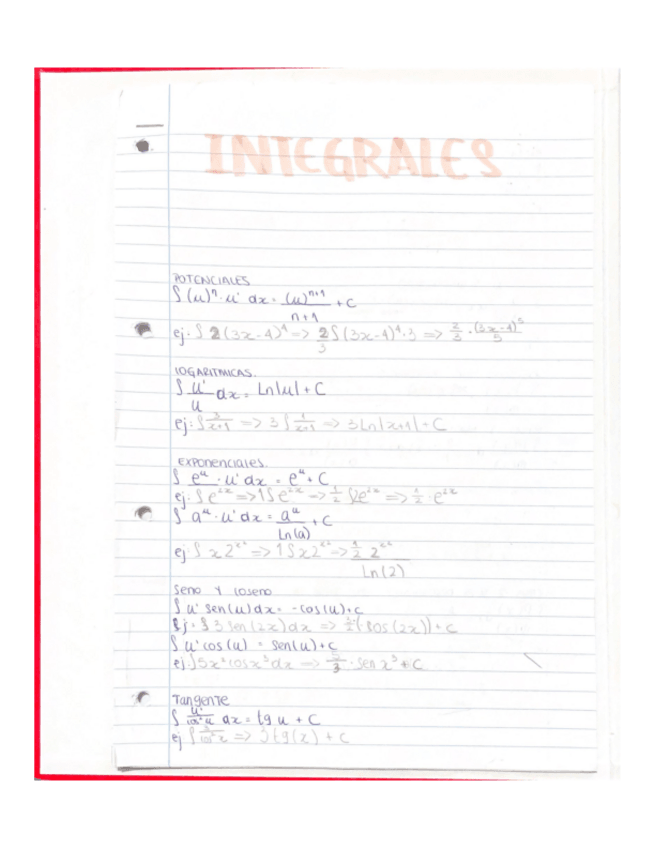 INTEGRALES
POTENCIALES
∫(u)ⁿ·u' dx = (u)ⁿ⁺¹/n+1 + C
ej: ∫2(3x-4)⁴ => 2/3∫(3x-4)⁴·3 => 2/3·(3x-4)⁵/5
LOGARITMICAS.
∫u'/u dx = Ln|u| + C
ej: ∫3/x+1 => 3∫1/x+1 => 3Ln|x+1| + C
EXPONENCIALES.
∫eᵘ·u' dx = eᵘ + C
ej: ∫e²ˣ => 1∫e²ˣ => 1/2∫2e²ˣ => 1/2·e²ˣ
∫aᵘ·u' dx = aᵘ/Ln(a) + C
ej: ∫x2ˣ² => 1∫x2ˣ² => 1/2 2ˣ²/Ln(2)
Seno Y Coseno
∫u' sen(u)dx = -cos(u)+C
Ej: ∫3 sen(2x)dx => 3/2(-cos(2x))+C
∫u'cos(u) = sen(u)+C
ej: ∫5x²cosx³dx => 5/3·senx³+C
Tangente
∫u'/cos²u dx = tg u + C
ej ∫3/cos²x => 3tg(x) + C